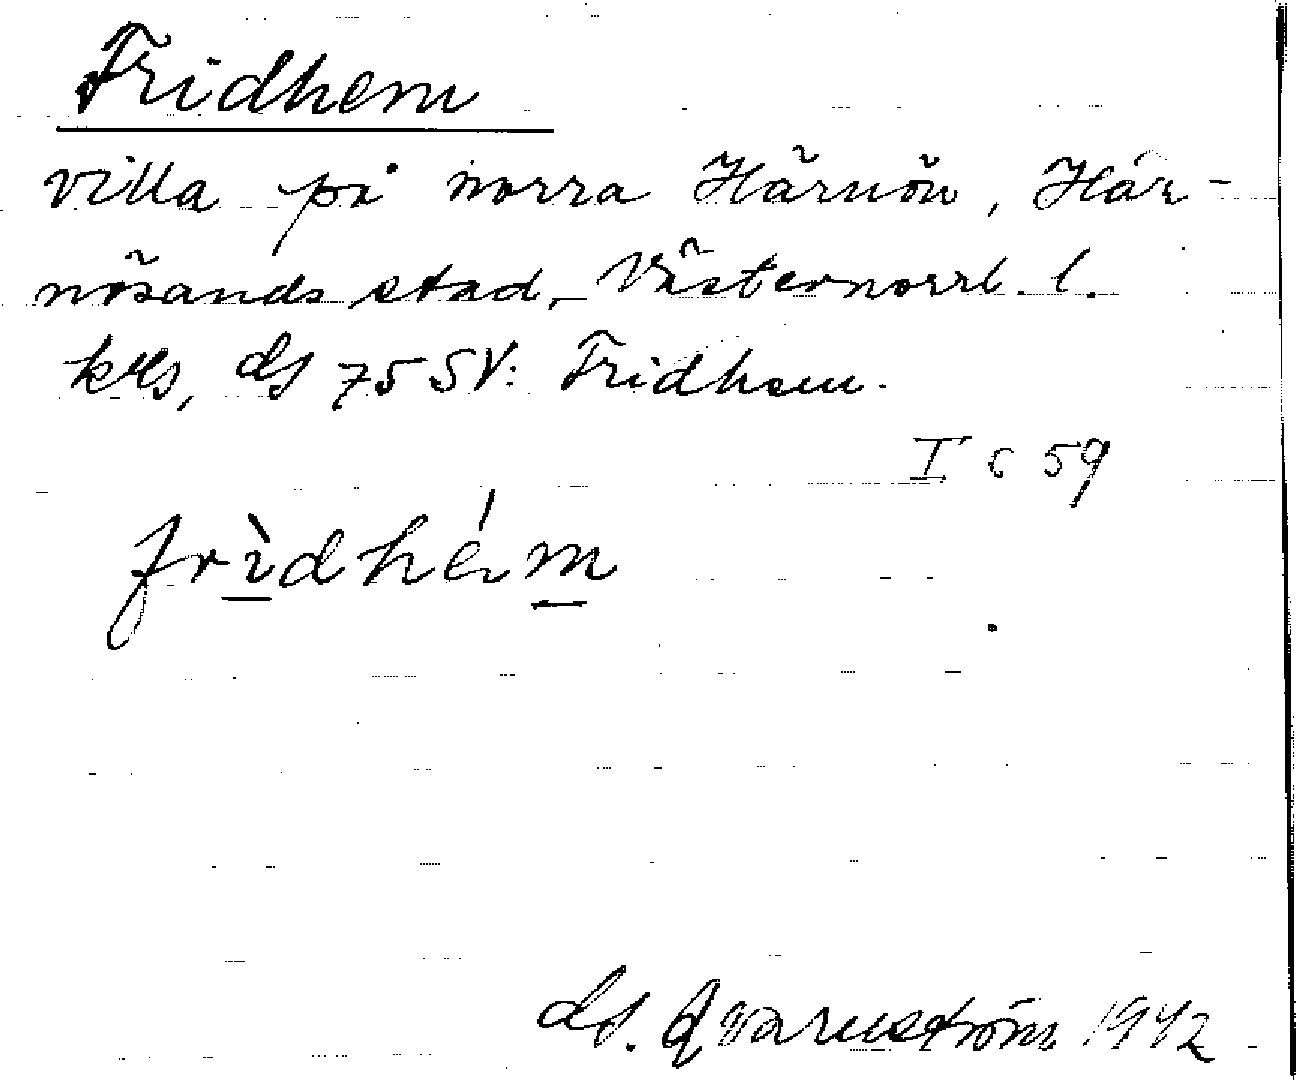 Fridhem
villa på norra Härnön, Här-
nösands stad, Västernorrl. l.
krts, ds 75 SV: Fridhem.
I c 59
frìdhém
ds. Qvarnström 1942